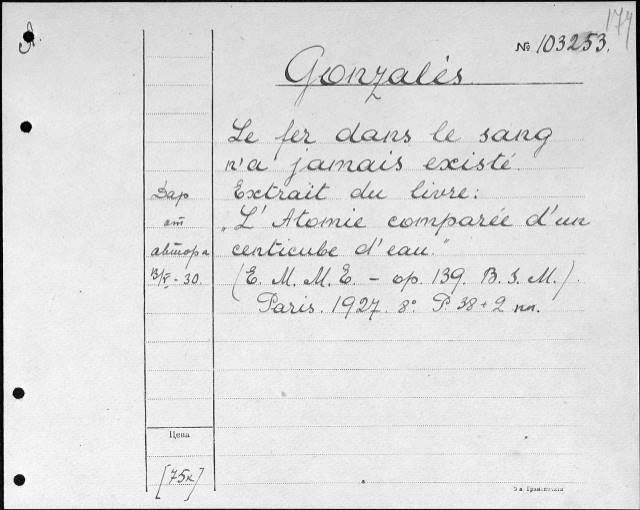 174
№ 103253.
Gonzalès
Le fer dans le sang
n'a jamais existé.
Extrait du livre:
„L'Atomie comparée d'un
centicube d'eau."
(E. M. M. E. - op. 139. B. S. M.)
Paris. 1927. 8°. P. 38 + 2 nn.
Дар
от
автора
13/V - 30.
Цена
[75к]